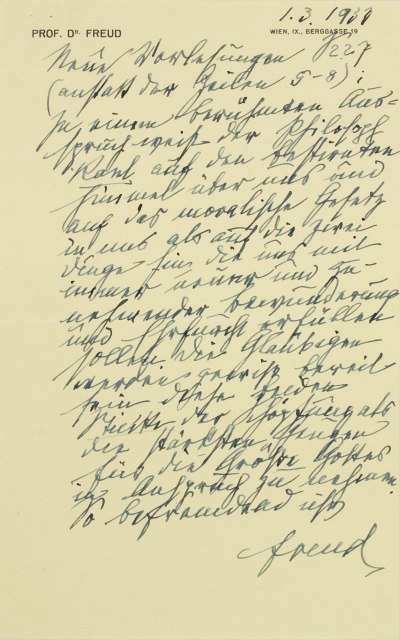 1.3.1933
PROF. DR. FREUD
WIEN, IX., BERGGASSE 19
Neue Vorlesungen S 227
(anstatt der Zeilen 5-8):
In einem berühmten Aus-
spruch weist der Philosoph
Kant auf den bestirnten
Himmel über uns und
auf das moralische Gesetz
in uns als auf die zwei
Dinge hin die uns mit
immer neuer und zu-
nehmender Bewunderung
und Ehrfurcht erfüllen
sollen Die Gläubigen
werden gewiss bereit
sein diese beiden
Stücke der Schöpfung als
die stärksten Zeugen
für die Größe Gottes
in Anspruch zu nehmen.
So befremdend uns
Freud